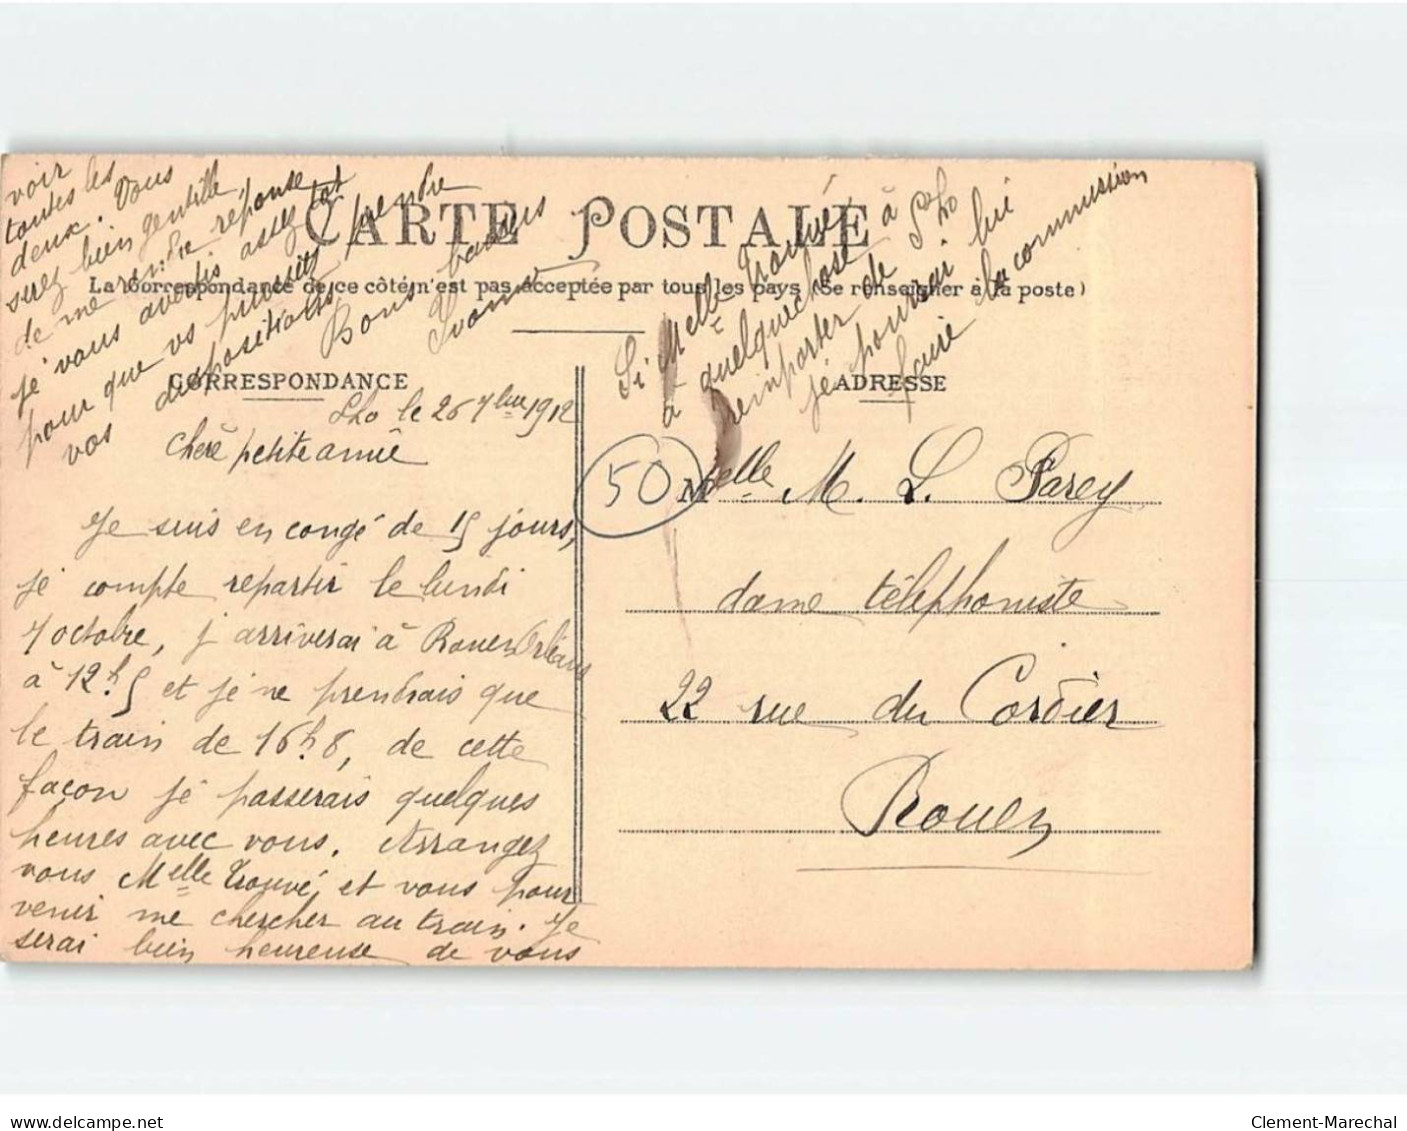 CARTE POSTALE
La Correspondance de ce côté n'est pas acceptée par tous les pays (Se renseigner à la poste)
CORRESPONDANCE
ADRESSE
Lho le 26 7bre 1912
Chère petite amie
Je suis en congé de 15 jours,
je compte repartir le lundi
7 octobre, j'arriverai à Rouen Orléans
à 12h5 et je ne prendrais que
le train de 16h8, de cette
façon je passerais quelques
heures avec vous. Arrangez
vous Melle Trouvé, et vous pour
venir me chercher au train. Je
serai bien heureuse de vous
voir
toutes les
deux. Vous
serez bien gentille
de me rendre reponse
je vous avertis assez tot
pour que vs puissiez prendre
vos dispositions
Bons baisers
Yvonne
Si Melle Trouvé
a quelque chose à
remporter de St Lho
je pourrai lui
faire la commission
50
Melle M. L. Parey
dame téléphoniste
22 rue du Cordier
Rouen
delcampe.net
Clement-Marechal